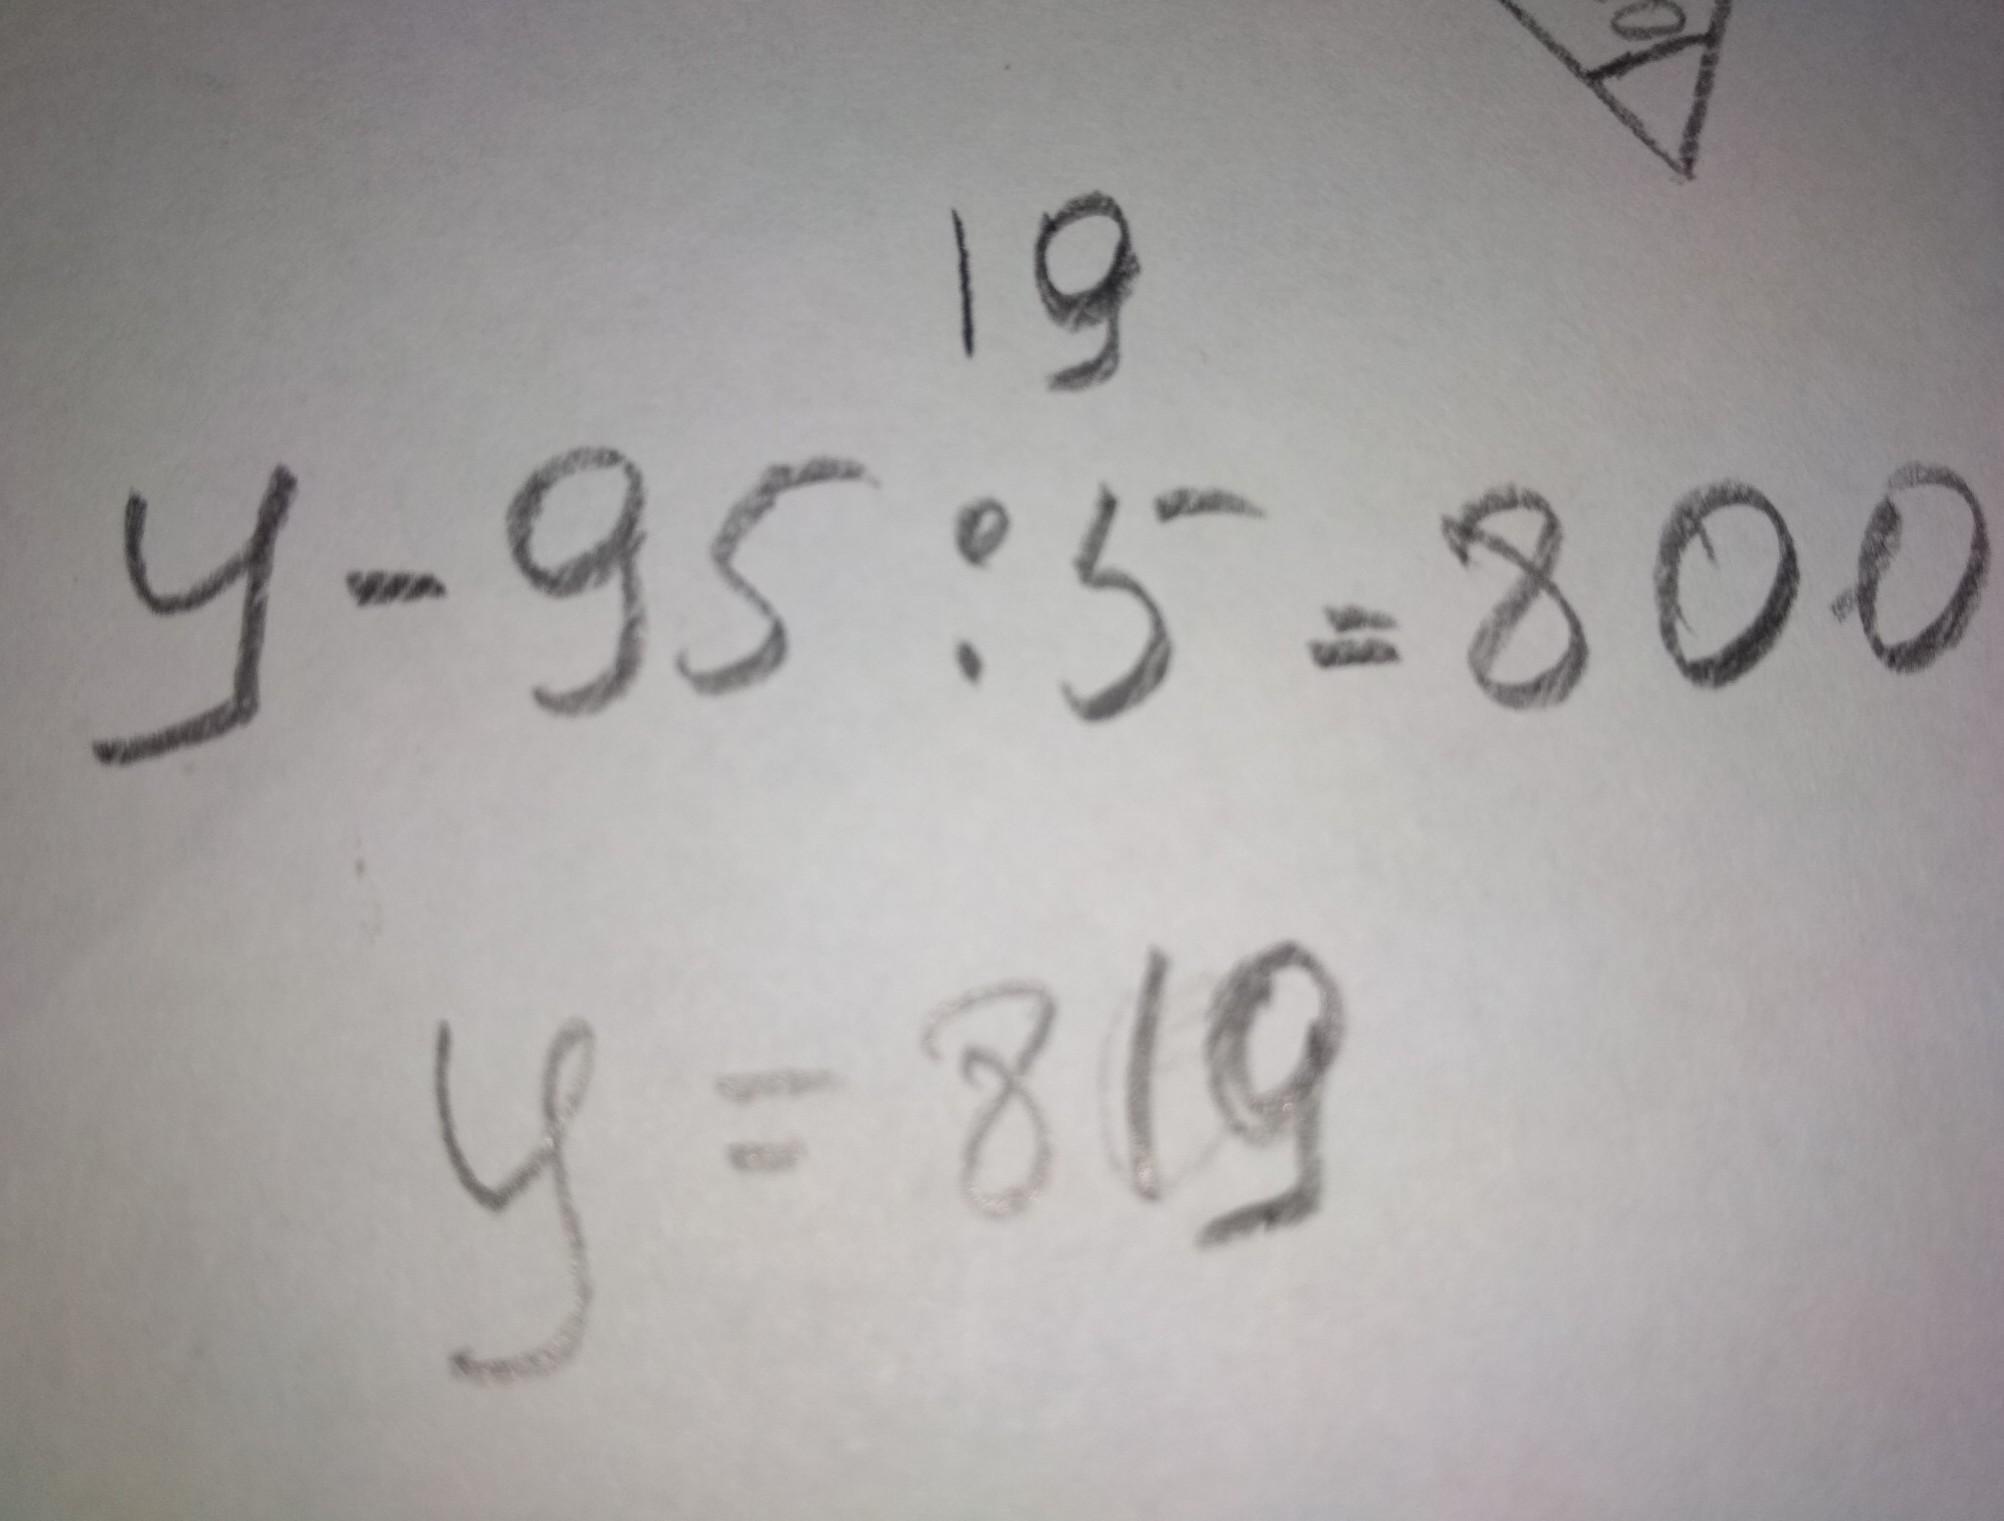 19
y - 95 : 5 = 800
y = 819